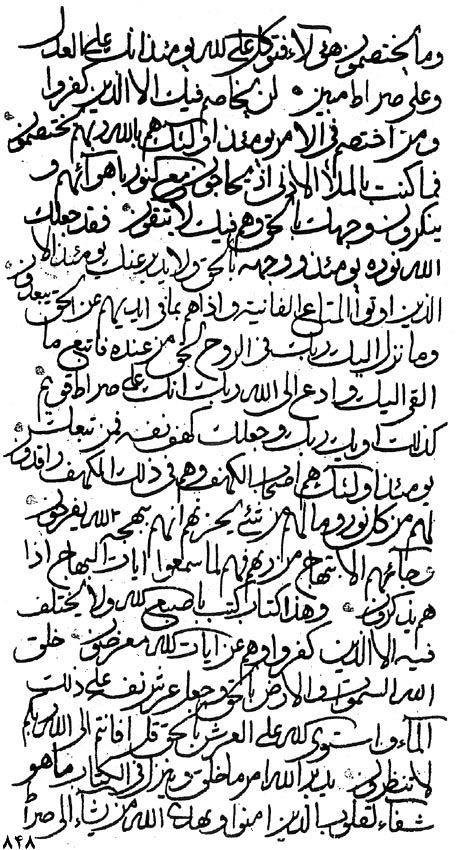 وما يختصمون هؤلاء فتوكل على الله يومئذ انك على العدل
وعلى صراط مبين لن يخاصم فيك الا الذين كفروا
ومن اختصم في الامر يومئذ اولئك هم بالله ربهم يختصمون
فما كنت بالملأ الادنى اذ يحاجون مع كنور باهوائهم و
ينكرون وجهك بالحق وهم فيك لا يتقون فقد جعلك
الله نوره يومئذ ووجهه بالحق ولا يدبر عنك يومئذ الا
الذين اوتوا المتاع الفانية واذا هم بما في ايديهم عن الحق يبعدون
وما نزل اليك ربك في الروح الحق من عنده فاتبع ما
القي اليك وادع الى الله ربك انك على صراط قويم
كذلك اويك ربك وجعلك كهف نفسه فمن تبعك
يومئذ اولئك هم اصحاب الكهف وهم في ذلك الكهف راقدون
لهم من كل نور وما لهم من شئ يحزنهم انهم ببهجة الله يفرحون
وجائهم الابتهاج من ربهم لما سمعوا ايات البهاج اذا
هم يذكرون وهذا كتاب كتب باصبع الله ولا يختلف
فيه الا الذين كفروا وهم عن ايات الله معرضون خلق
الله السموات والارض بالحق وجعل عرش نفسه على ذلك
الماء واستوى الله على العرش بالحق قل افانتم الى الله ربكم
لا تنظرون يدبر الله امر ما خلق وينزل في الكتاب ما هو
شفاء لقلوب الذين امنوا ويهدي الله من يشاء الى صراط
٨٤٨